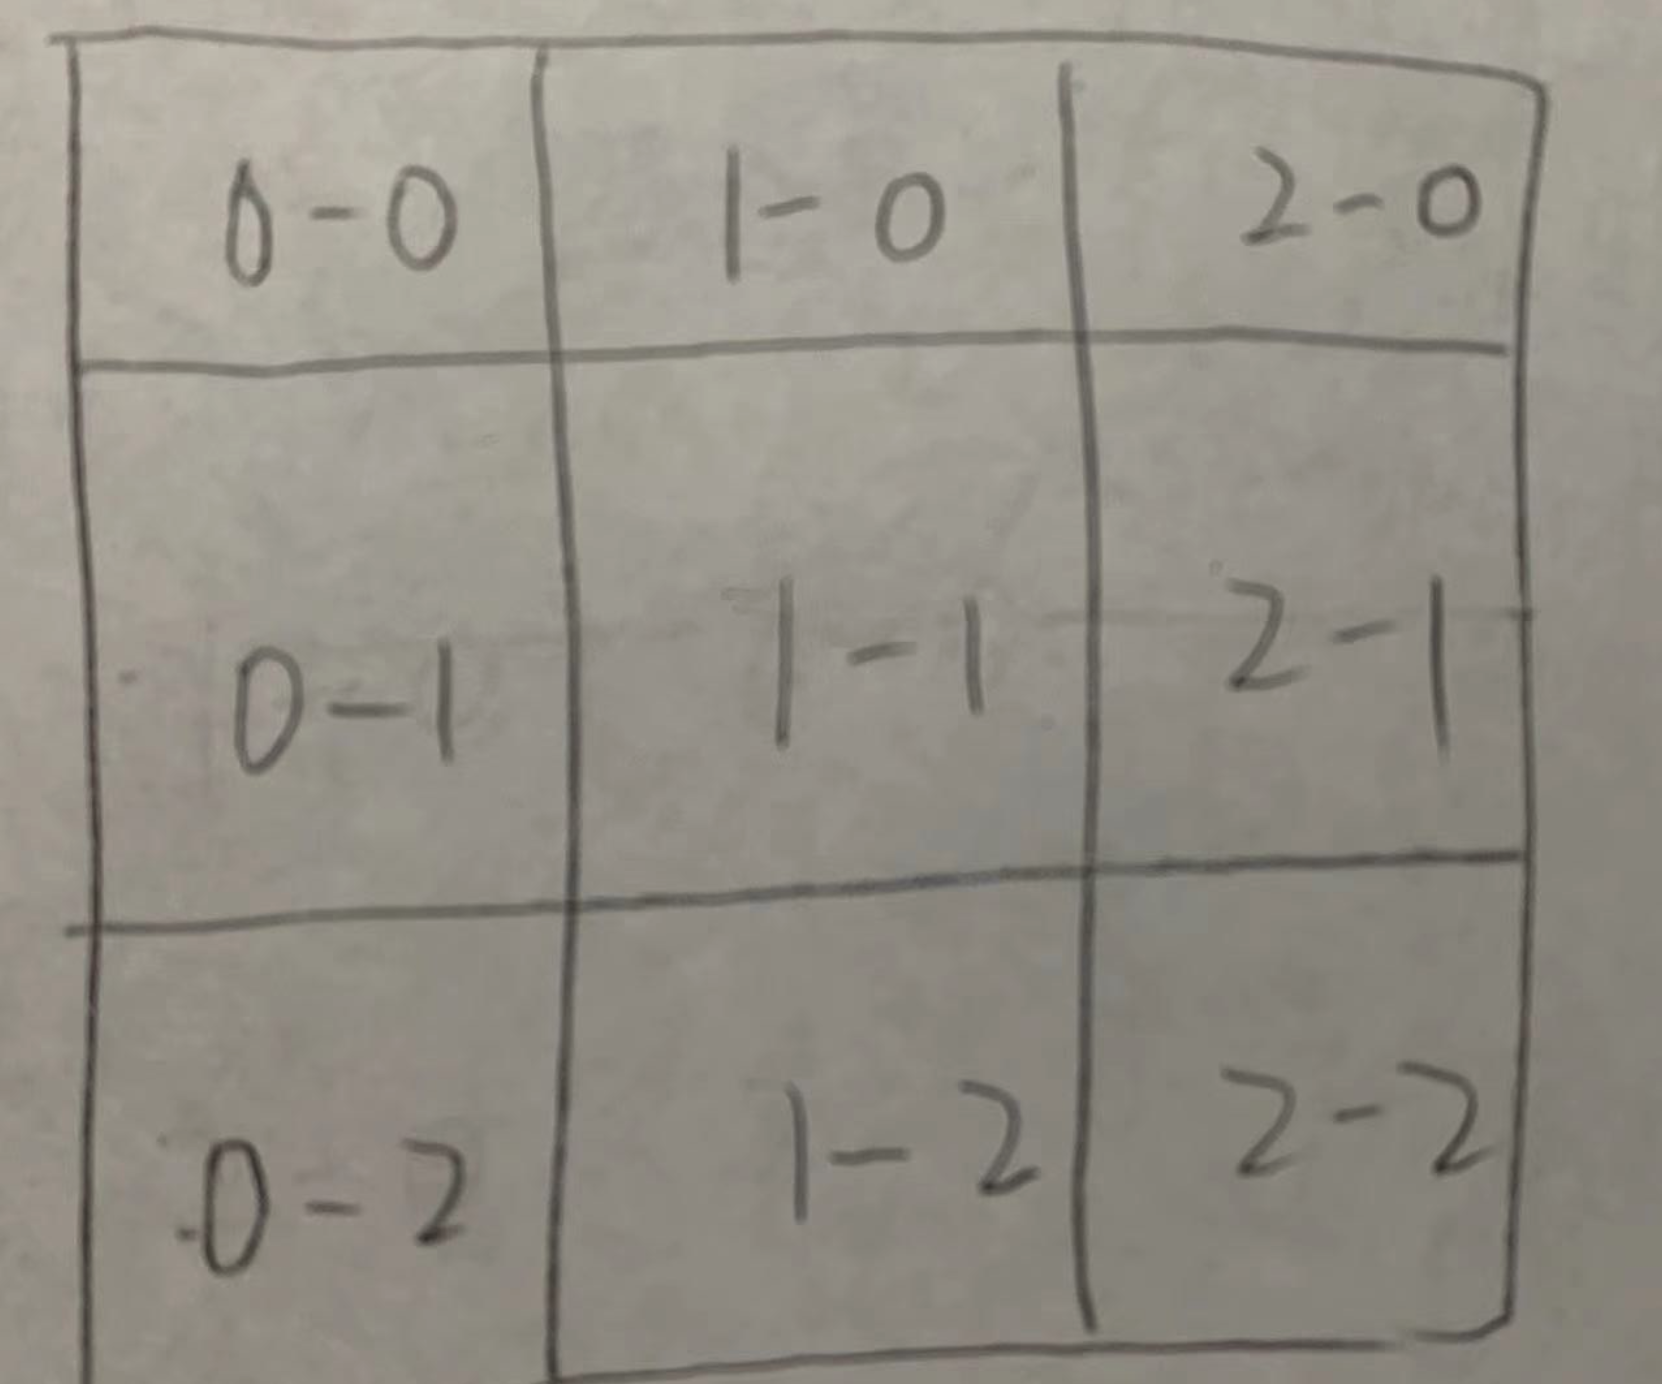 0-0 1-0 2-0
0-1 1-1 2-1
0-2 1-2 2-2